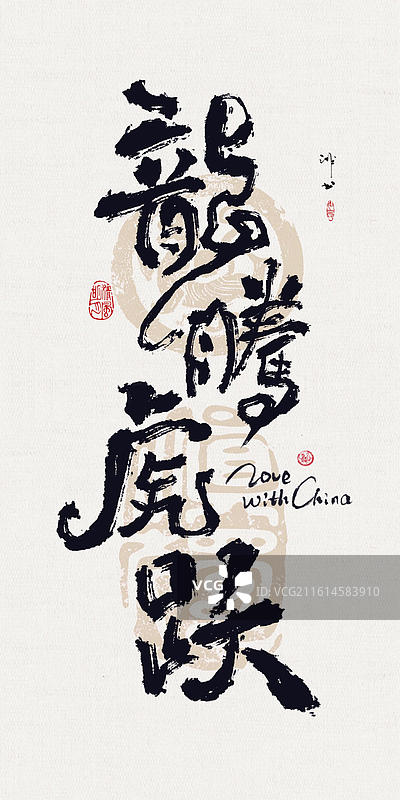 龍
騰
虎
跃
Love
with China
VCG
VCG211614583910